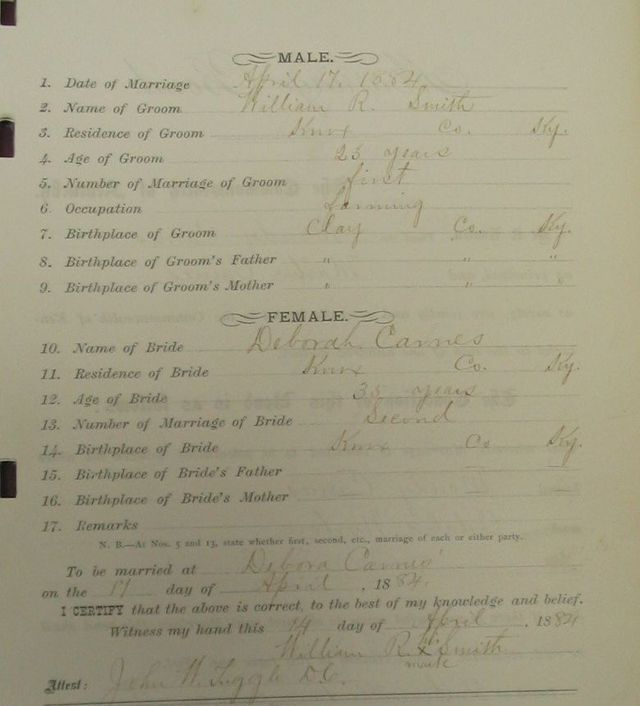 MALE.
1. Date of Marriage April 17, 1884
2. Name of Groom William R. Smith
3. Residence of Groom Knox Co. Ky.
4. Age of Groom 25 years
5. Number of Marriage of Groom first
6. Occupation Farming
7. Birthplace of Groom Clay Co. Ky.
8. Birthplace of Groom's Father " " "
9. Birthplace of Groom's Mother " " "
FEMALE.
10. Name of Bride Deborah Carnes
11. Residence of Bride Knox Co. Ky.
12. Age of Bride 35 years
13. Number of Marriage of Bride Second
14. Birthplace of Bride Knox Co Ky.
15. Birthplace of Bride's Father
16. Birthplace of Bride's Mother
17. Remarks
N. B.—At Nos. 5 and 13, state whether first, second, etc., marriage of each or either party.
To be married at Debora Carnes'
on the 17 day of April, 1884.
I CERTIFY that the above is correct, to the best of my knowledge and belief.
Witness my hand this 14 day of April, 1884
William R. his x Smith
mark
Attest: John W. Tuggle D.C.